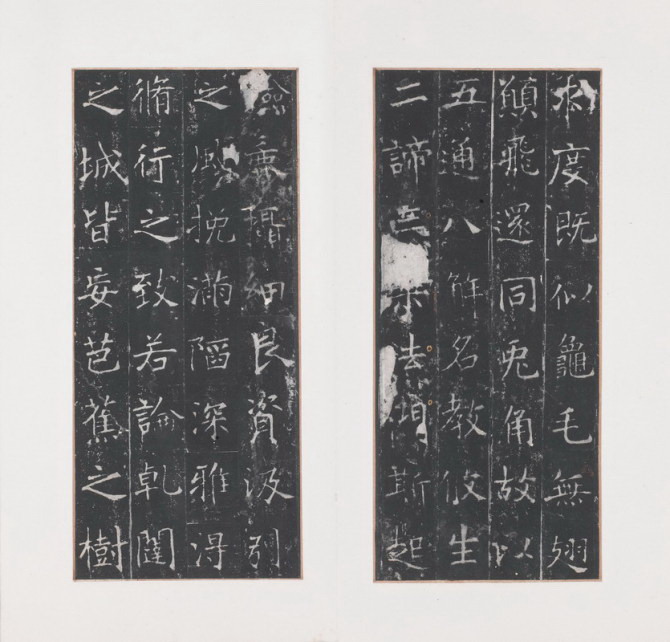 求度既似龜毛無翅
願飛還同兔角故以
五通八解名教攸生
二諦三乘法門斯起
麁攝細良資汲引
之風挽滿陷深雅淂
脩行之致若論乹闥
之城皆妄芭蕉之樹